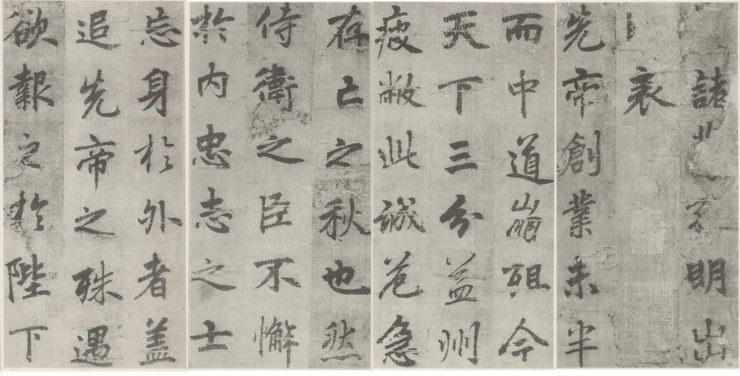 諸葛孔明出
表
先帝創業未半
而中道崩殂今
天下三分益州
疲敝此誠危急
存亡之秋也然
侍衛之臣不懈
於内忠志之士
忘身於外者盖
追先帝之殊遇
欲報之於陛下